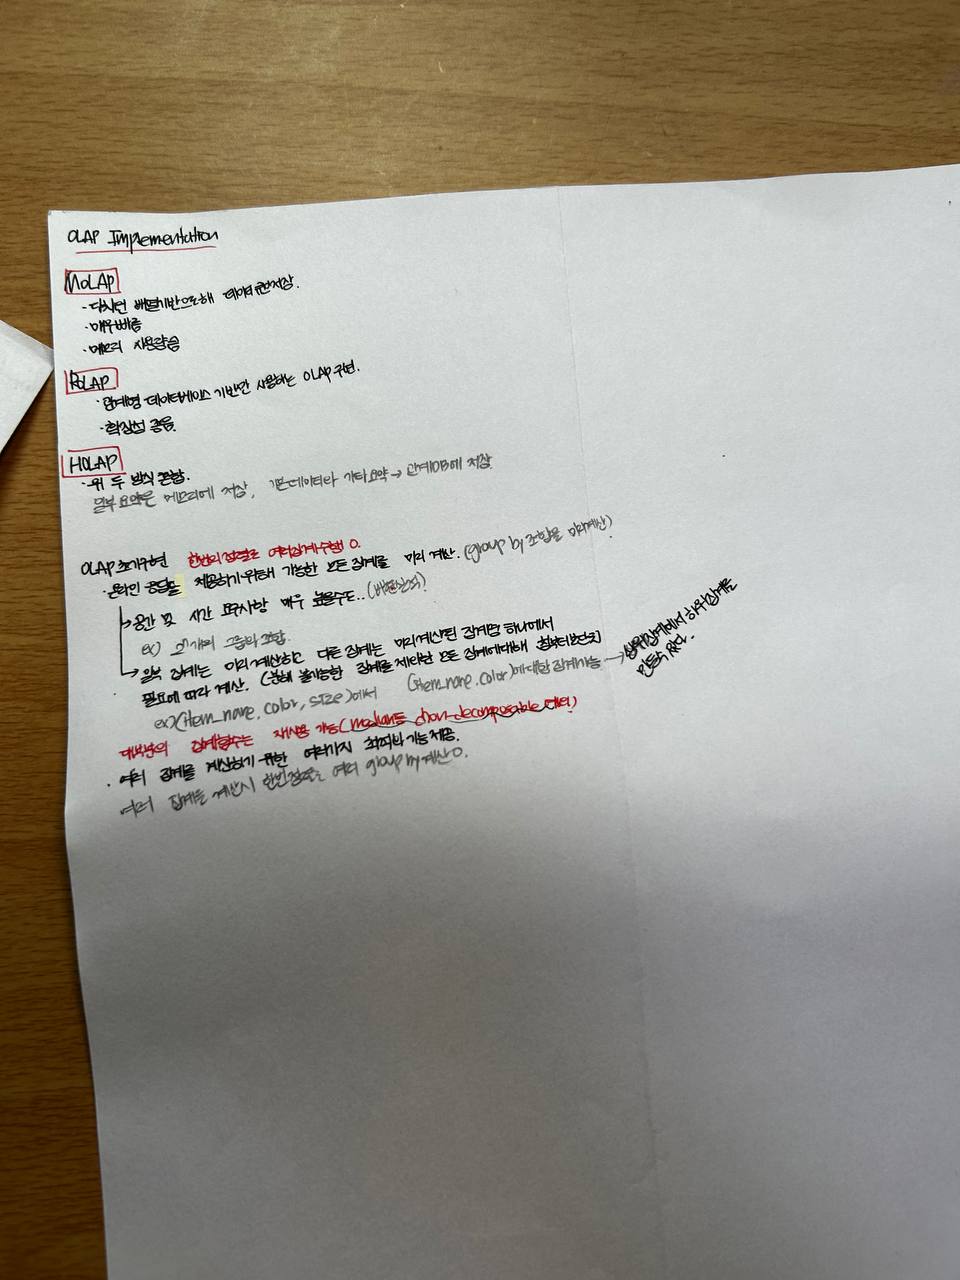 OLAP Implementation
MOLAP
· 다차원 배열기반으로해 데이터큐브저장.
· 매우빠름
· 메모리 사용많음
ROLAP
· 관계형 데이터베이스 기반만 사용하는 OLAP구현.
· 확장성 좋음.
HOLAP
· 위 두 방식 혼합.
일부요약은 메모리에 저장, 기본데이터와 기타요약 → 관계DB에 저장
OLAP 초기구현 한번의 정렬로 여러집계수행 O.
· 온라인 응답을 제공하기위해 가능한 모든 집계를 미리 계산. (group by 조합을 미리계산)
↳ 공간 및 시간 요구사항 매우 높을수도..
ex) 2ⁿ개의 그룹의 조합.
↳ 일부 집계는 미리계산하고 다른 집계는 미리계산된 집계중 하나에서
필요에 따라 계산. (분해 불가능한 집계를 제외한 모든 집계에대해
ex) (item_name, color, size)에서 (item_name, color)에 대한 집계가능 → 상위집계에서 하위집계를
만들수 있다.
대부분의 집계함수는 재사용 가능 (median등 non-decomposable 제외)
· 여러 집계를 계산하기 위한 여러가지 최적화 기능제공.
여러 집계를 계산시 한번정렬로 여러 group by 계산O.